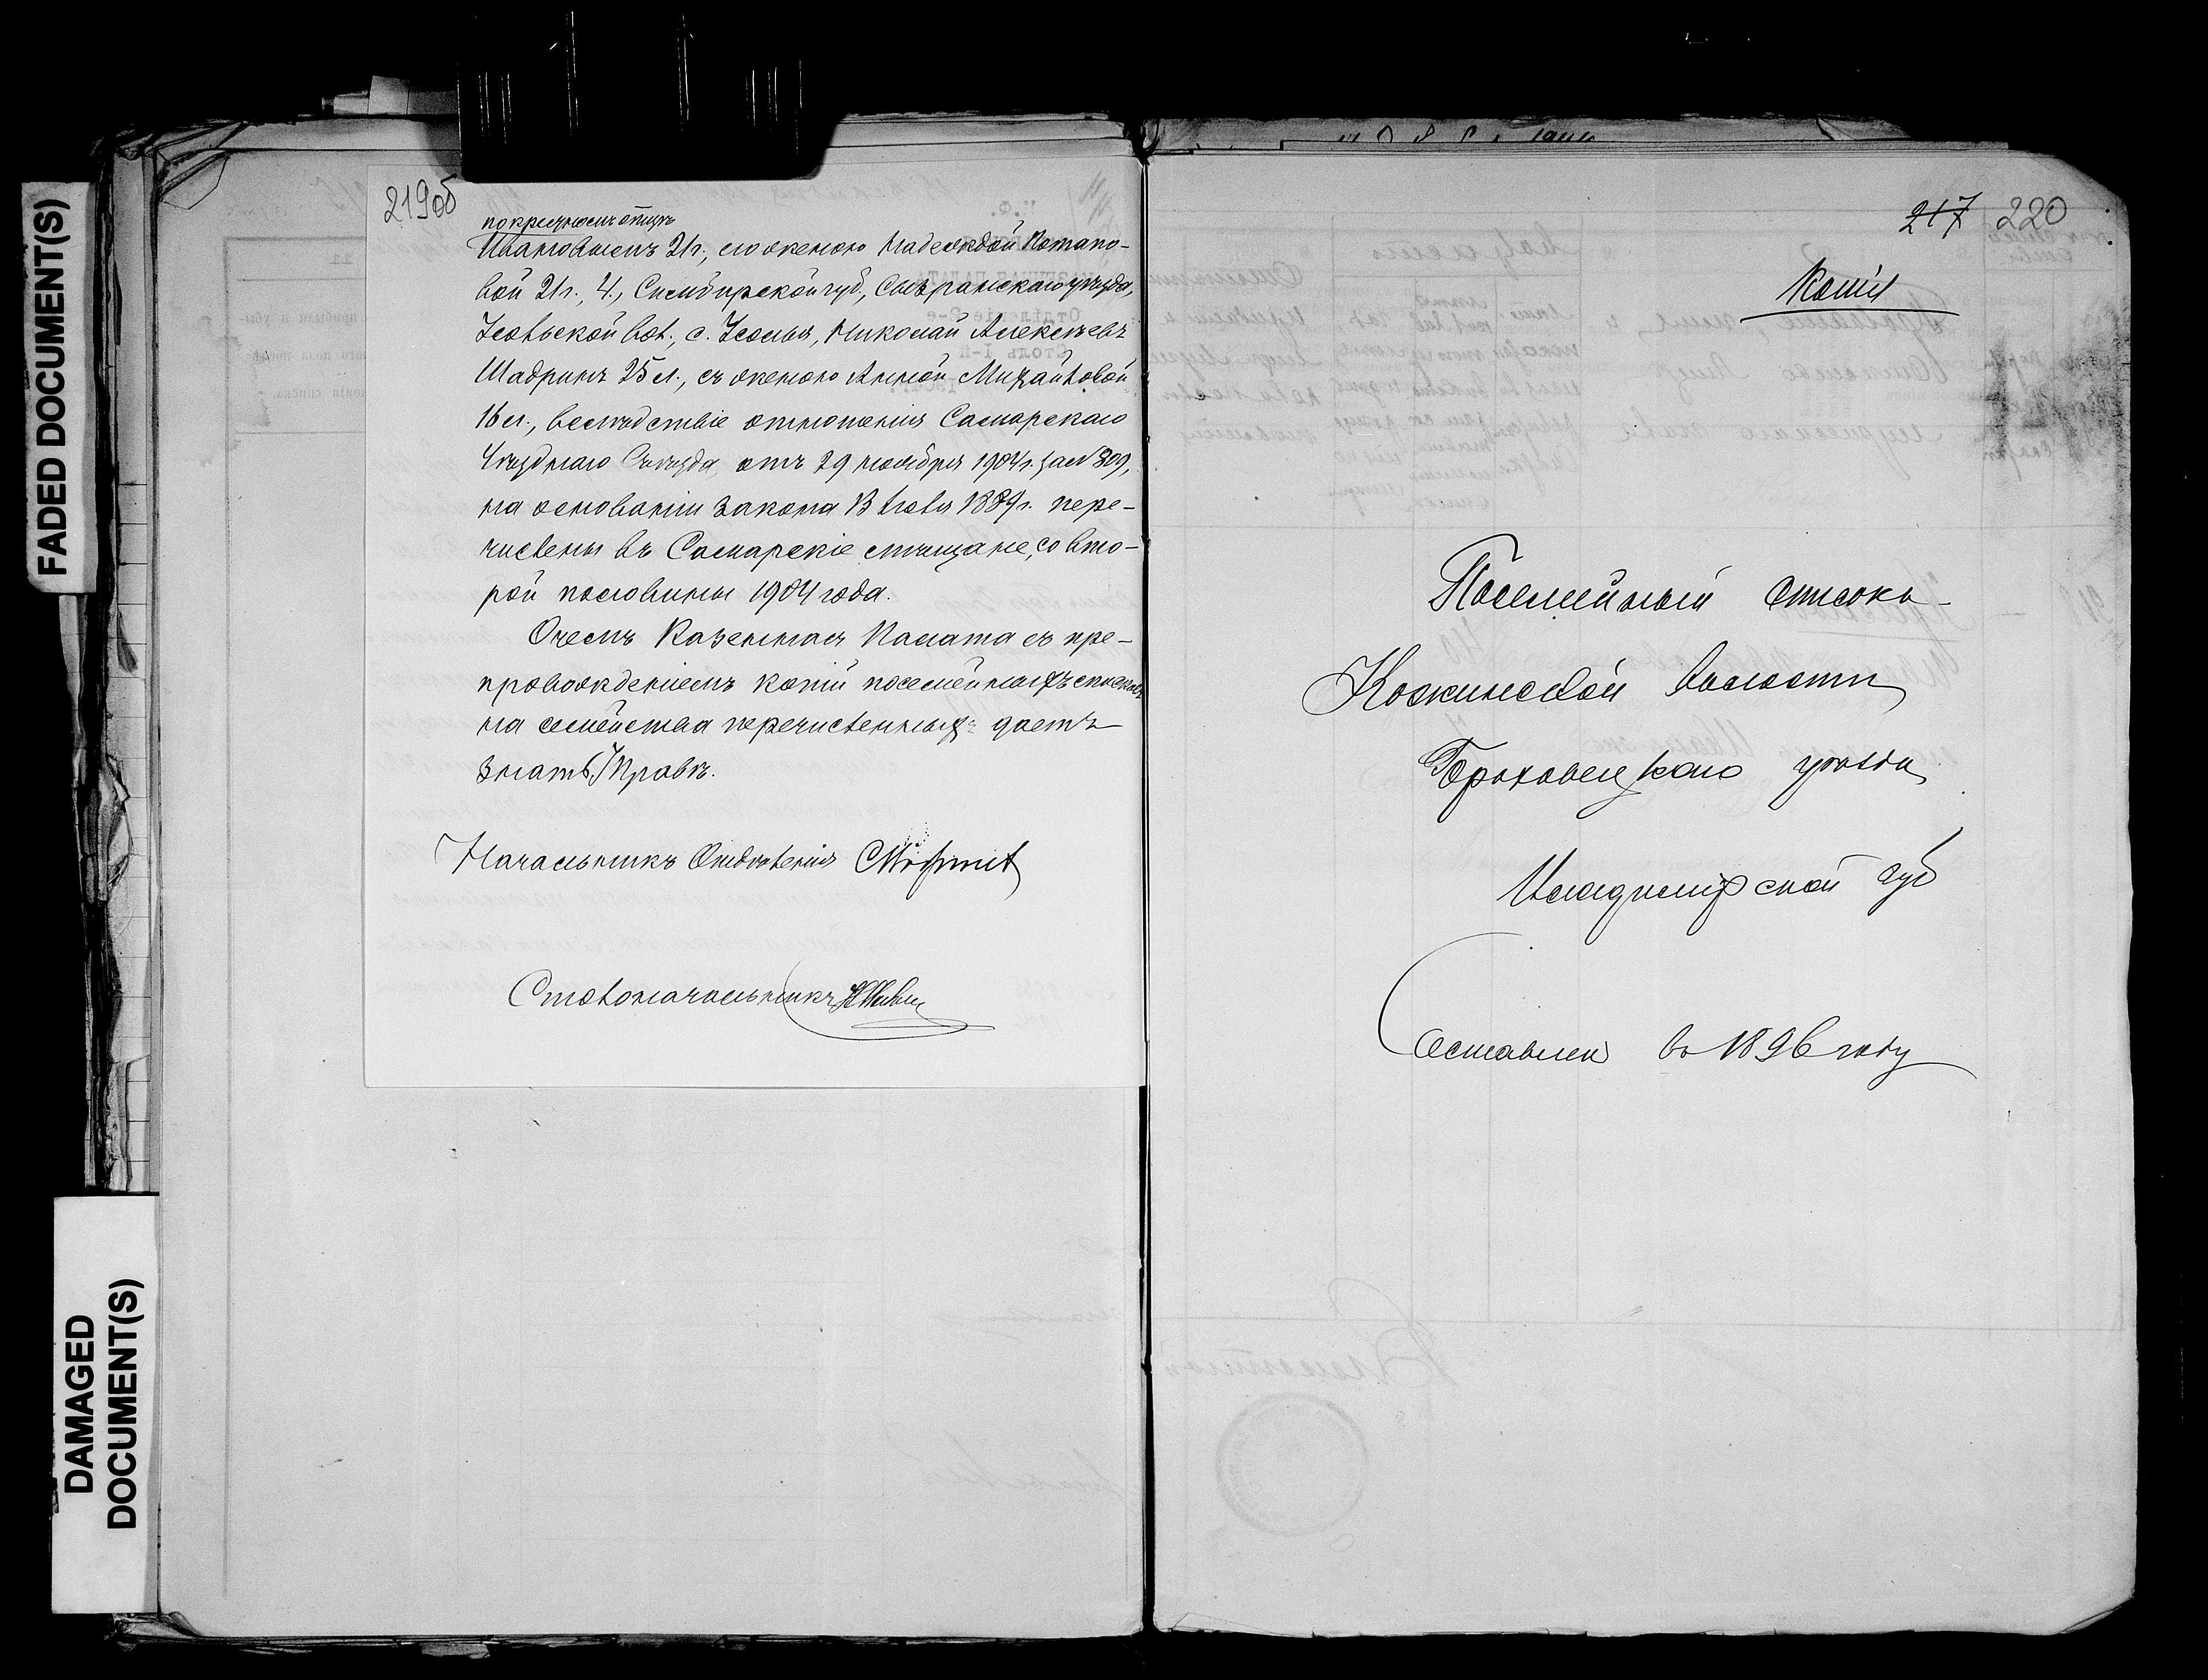 FADED DOCUMENT(S)
DAMAGED DOCUMENT(S)
219об
по крестному отцу
Ивановичемъ 21 г., его женою Надеждой Потапо-
вой 21 г., 4., Симбирской губ., Сызранскаго уѣзда,
Усольской вол., с. Усолья, Николай Алексѣевъ
Шадринъ 25 л., съ женою Анной Михайловой
16 л., вслѣдствіе отношенія Самарскаго
Уѣзднаго Съѣзда отъ 29 ноября 1904 г. за № 309,
на основаніи закона 13 Іюля 1884 г. пере-
числены въ Самарскіе мѣщане, со вто-
рой половины 1904 года.
О чемъ Казенная Палата съ пре-
провожденіемъ копій посемейныхъ списковъ
на семейства перечисленныхъ даетъ
знать Управѣ.
Начальникъ Отдѣленія
Столоначальникъ
217 220
Копія
Посемейный списокъ
Кожинской волости
Гороховецкаго уѣзда
Владимірской губ
Составлен въ 1896 году